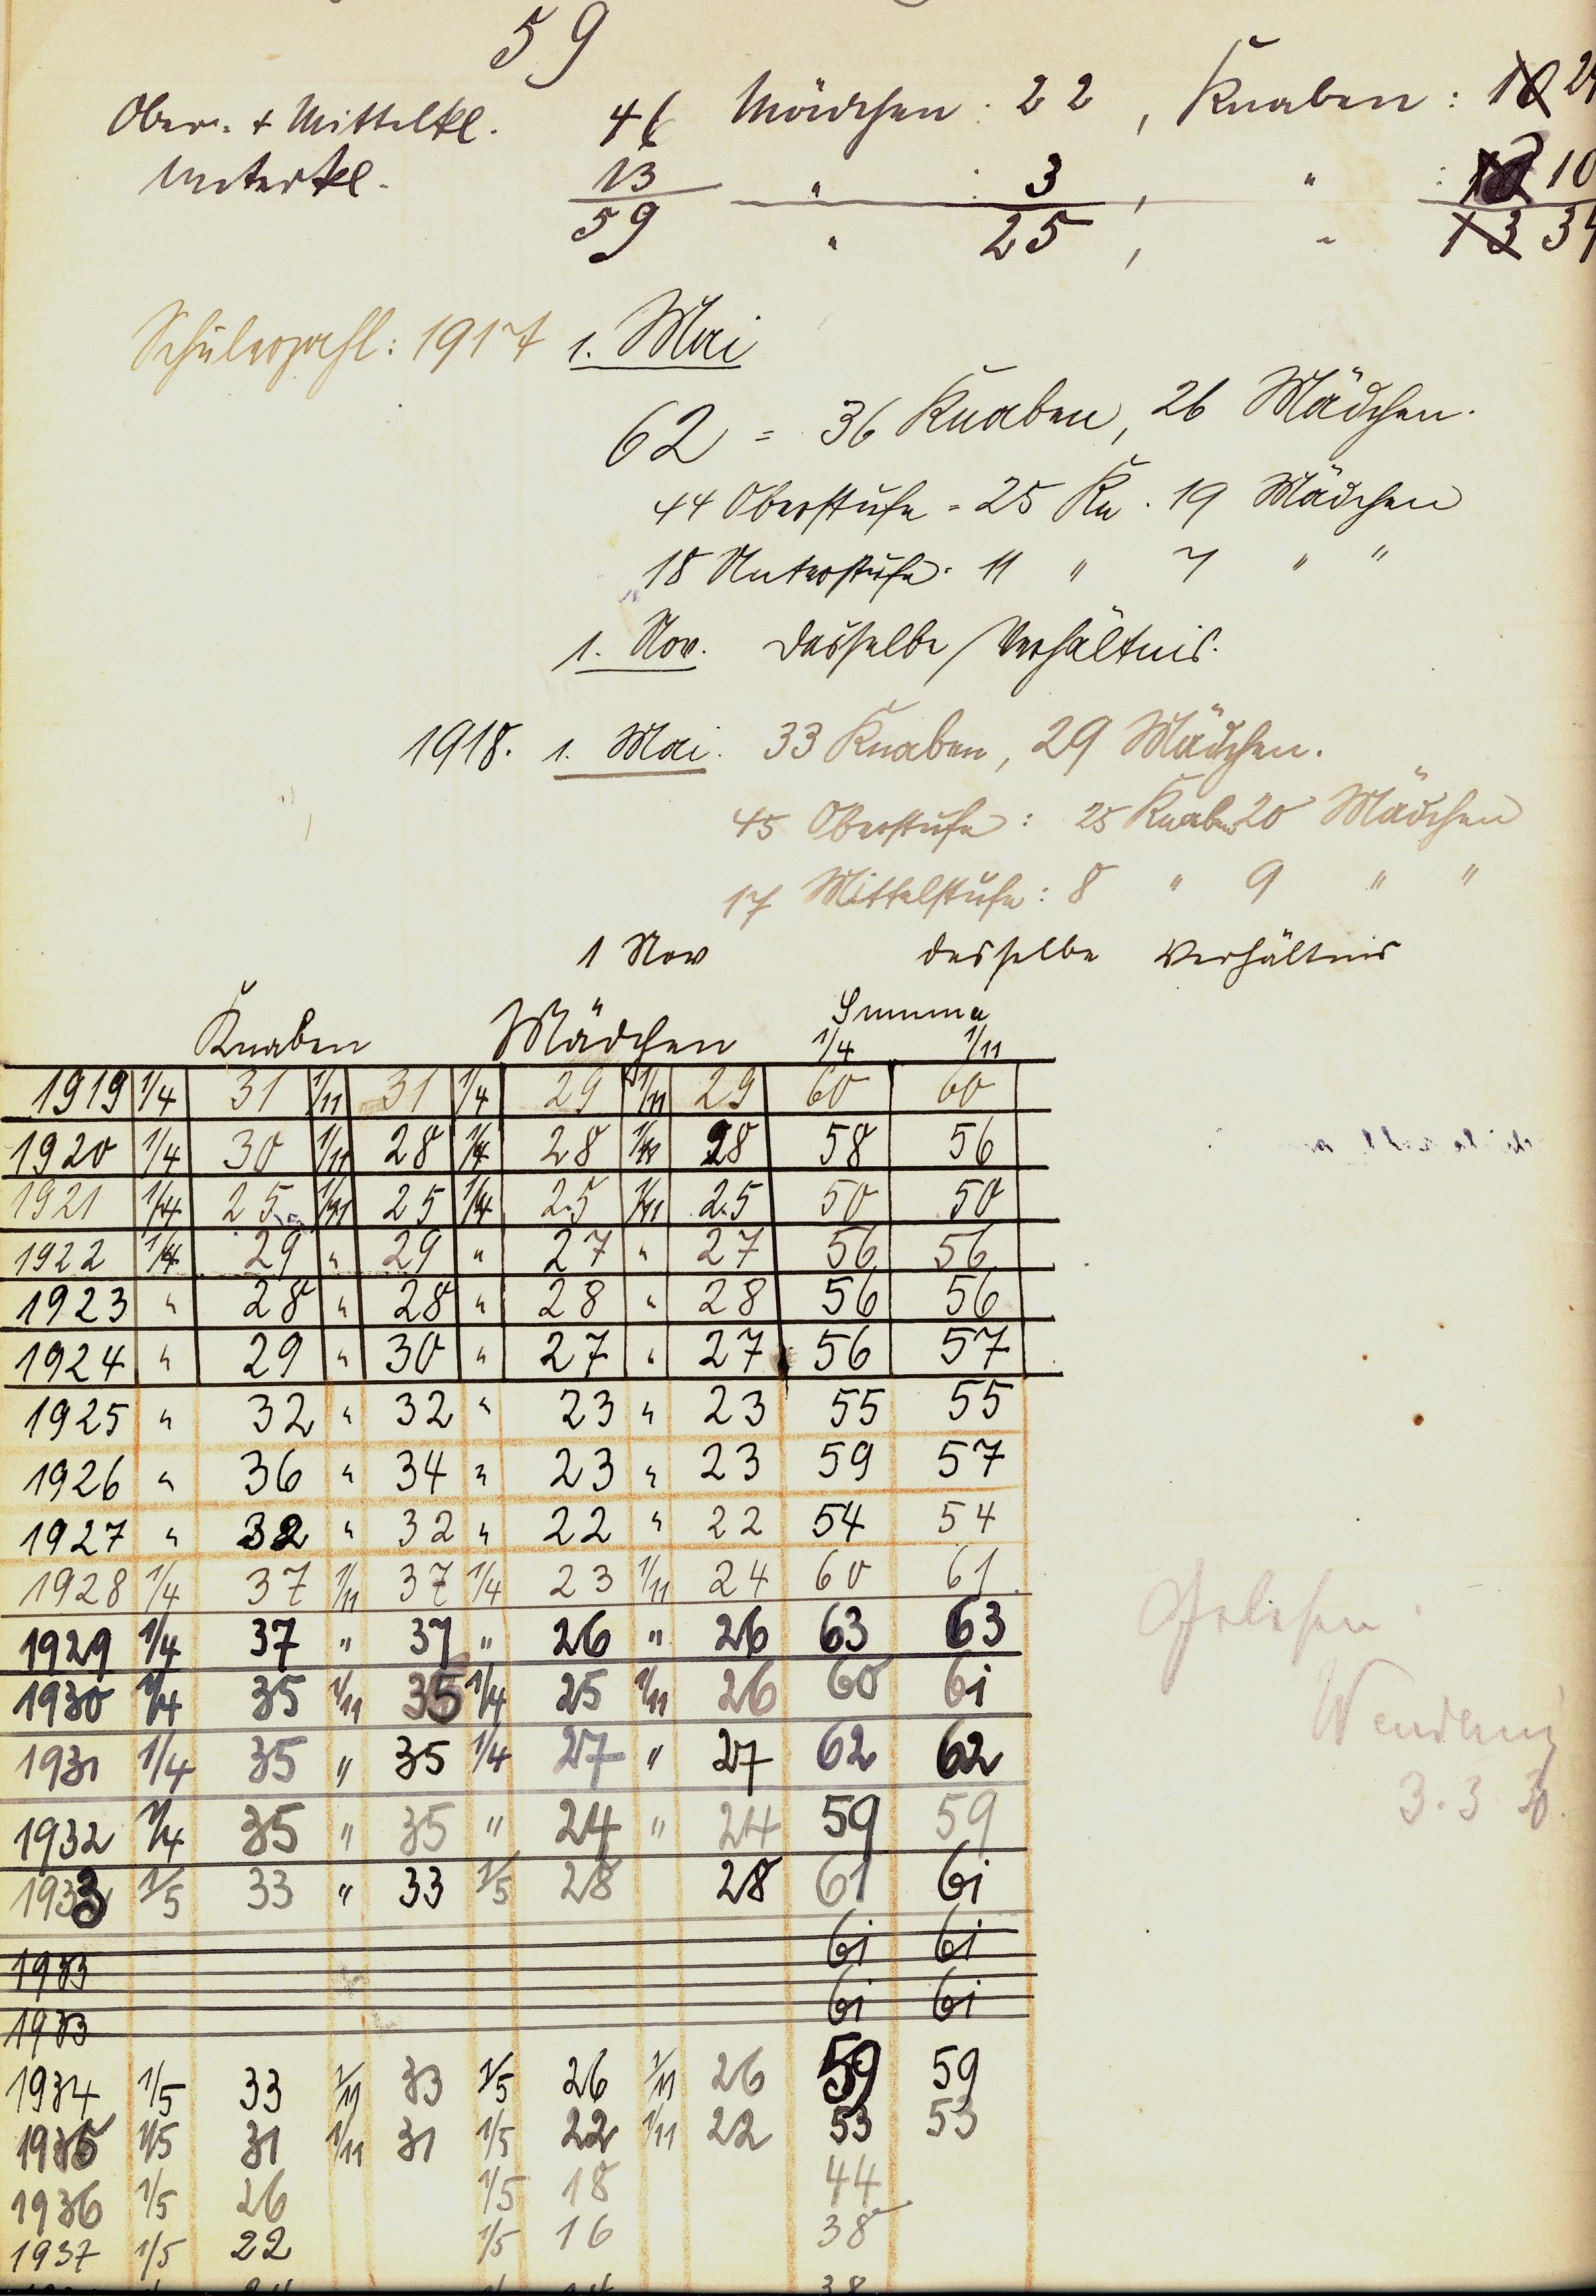 59
Ober- + Mittelkl. 46 Mädchen : 22 , Knaben : 10 24
Unterkl. 13 " : 3 , " : 10
59 " 25 , " 13 34
Schülerzahl: 1917 1. Mai
62 = 36 Knaben, 26 Mädchen.
44 Oberstufe = 25 Kn. 19 Mädchen
18 Unterstufe = 11 " 7 " "
1. Nov. dasselbe Verhältnis.
1918. 1. Mai. 33 Knaben, 29 Mädchen.
45 Oberstufe : 25 Knaben 20 Mädchen
17 Mittelstufe : 8 " 9 " "
1 Nov dasselbe Verhältnis
Knaben Mädchen Summa
1/4 1/11
1919 1/4 31 1/11 31 1/4 29 1/11 29 60 60
1920 1/4 30 1/11 28 1/4 28 1/11 28 58 56
1921 1/4 25 1/11 25 1/4 25 1/11 25 50 50
1922 1/4 29 " 29 " 27 " 27 56 56
1923 " 28 " 28 " 28 " 28 56 56
1924 " 29 " 30 " 27 " 27 56 57
1925 " 32 " 32 " 23 " 23 55 55
1926 " 36 " 34 " 23 " 23 59 57
1927 " 32 " 32 " 22 " 22 54 54
1928 1/4 37 1/11 37 1/4 23 1/11 24 60 61
1929 1/4 37 " 37 " 26 " 26 63 63
1930 1/4 35 1/11 35 1/4 25 1/11 26 60 61
1931 1/4 35 " 35 1/4 27 " 27 62 62
1932 1/4 35 " 35 " 24 " 24 59 59
1933 1/5 33 " 33 1/5 28 28 61 61
1933 61 61
1933 61 61
1934 1/5 33 1/11 33 1/5 26 1/11 26 59 59
1935 1/5 31 1/11 31 1/5 22 1/11 22 53 53
1936 1/5 26 1/5 18 44
1937 1/5 22 1/5 16 38
38
Gelesen.
3. 3. 30.